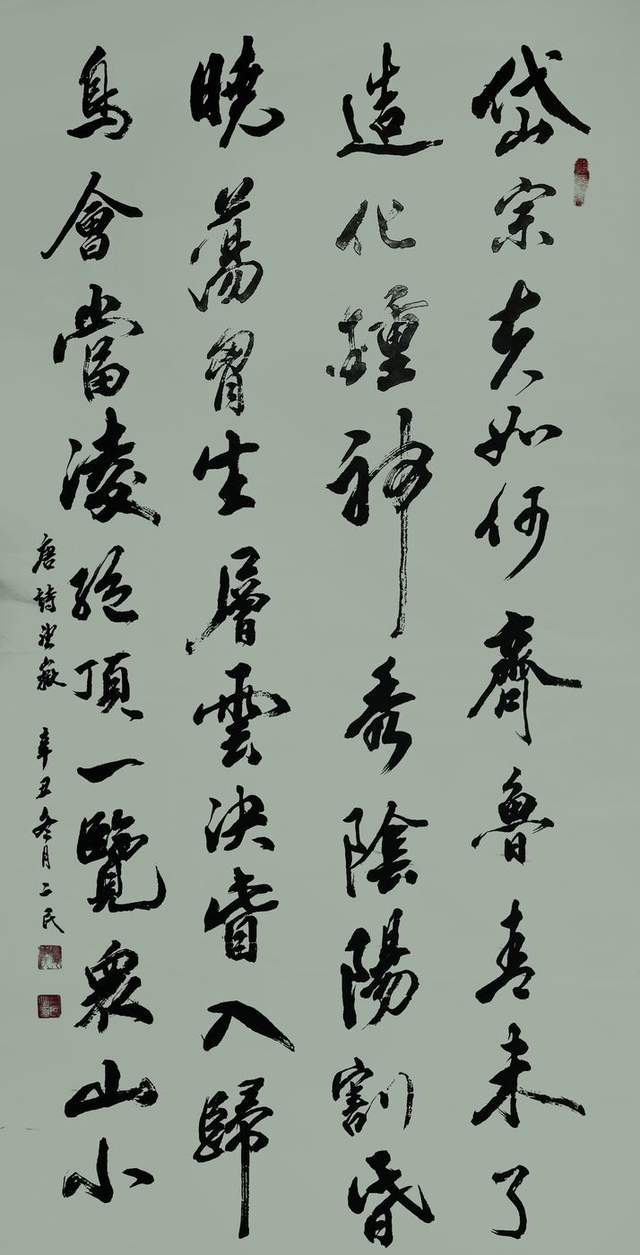 岱宗夫如何齊魯青未了
造化鍾神秀陰陽割昏
曉蕩胷生層雲決眥入歸
鳥會當凌絕頂一覽衆山小
唐詩望嶽 辛丑冬月二民